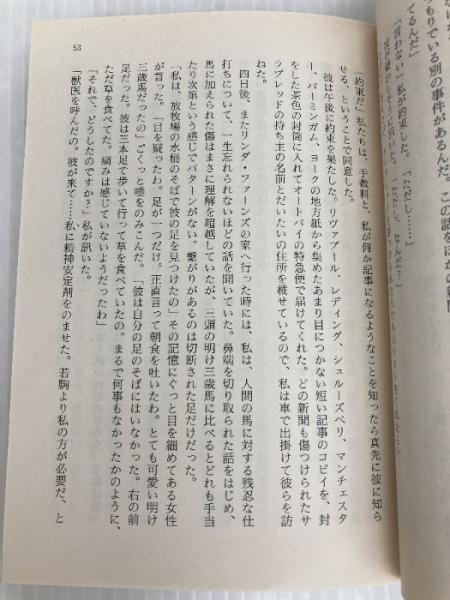 53
約束だ」私たちは、手数料と、私が何か記事になるようなことを知ったら真先に彼に知ら
せる、ということで同意した。
彼は午後に約束を果たした。リヴァプール、レディング、シュルーズベリ、マンチェスタ
ー、バーミンガム、ヨークの地方紙から集めたあまり目につかない短い記事のコピイを、封
をした茶色の封筒に入れてオートバイの特急便で届けてくれた。どの新聞も傷つけられたサ
ラブレッドの持ち主の名前とだいたいの住所を載せているので、私は車で出掛けて彼らを訪
ねた。
四日後、またリンダ・ファーンズの家へ行った時には、私は、人間の馬に対する残忍な仕
打ちについて、一生忘れられないほどの話を聞いていた。鼻端を切り取られた話をはじめ、
馬に加えられた傷はまさに理解を超越していたが、三頭の明け三歳馬に比べるとどれも手当
たり次第という感じでパターンがない。繋がりがあるのは切断された足だけだった。
「私は、放牧場の水桶のそばで彼の足を見つけたの」その記憶にぐっと目を細めてある女性
が言った。「目を疑ったわ。足が一つだけ。正直言って朝食を吐いたわ。とても可愛い明け
三歳馬だったの」ごくっと唾をのみこんだ。「彼は自分の足のそばにはいなかった。右の前
足だった。彼は三本足で歩いて行って草を食べていたの。まるで何事もなかったかのように、
ただ草を食べてた。痛みは感じていないようだったわ」
「それで、どうしたのですか?」私が訊いた。
「獣医を呼んだの。彼が来て……私に精神安定剤をのませた。若駒より私の方が必要だ、と
てるんだ」
「言わない」私が約束した。「ただし……」
「ただし、なんだ?」